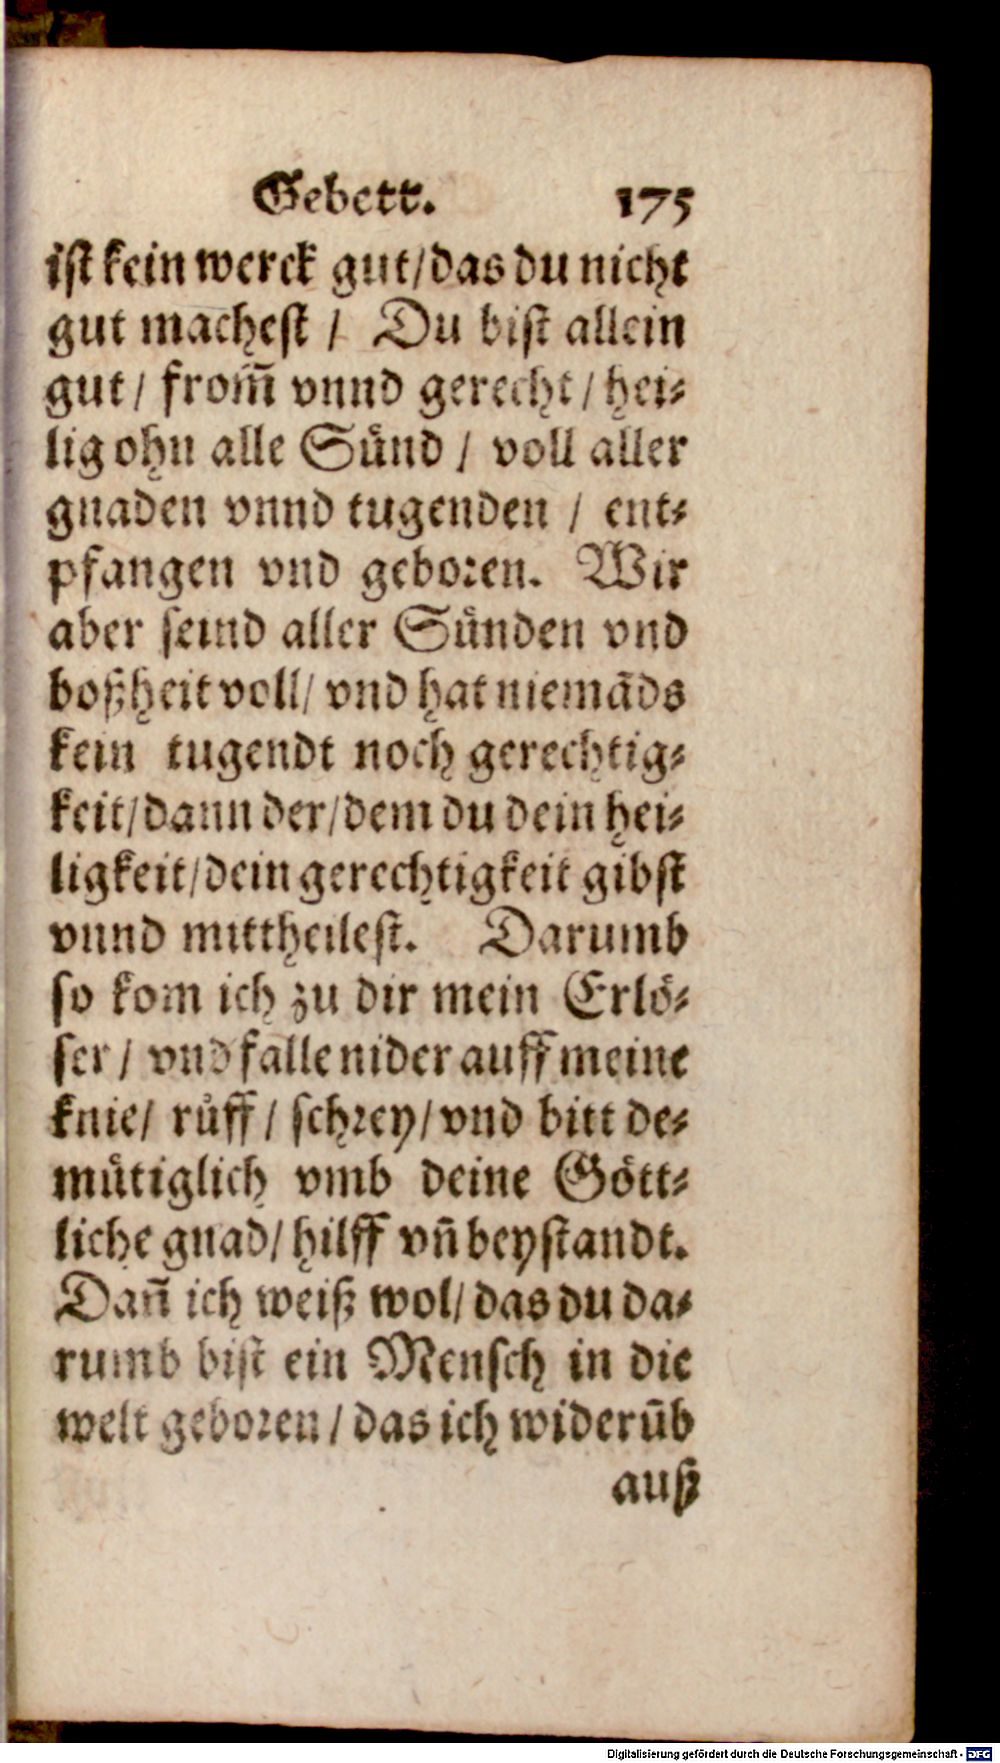 Gebett. 175
ist kein werck gut/das du nicht
gut machest / Du bist allein
gut/ from̃ vnnd gerecht/ hei⸗
lig ohn alle Sünd / voll aller
gnaden vnnd tugenden / ent⸗
pfangen vnd geboren. Wir
aber seind aller Sünden vnd
boßheit voll/ vnd hat niemãds
kein tugendt noch gerechtig⸗
keit/dann der/dem du dein hei⸗
ligkeit/dein gerechtigkeit gibst
vnnd mittheilest. Darumb
so kom ich zu dir mein Erlö⸗
ser/ vnd falle nider auff meine
knie/ rüff/ schrey/vnd bitt de⸗
mütiglich vmb deine Gött⸗
liche gnad/ hilff vñ beystandt.
Dañ ich weiß wol/ das du da⸗
rumb bist ein Mensch in die
welt geboren/ das ich widerũb
auß
Digitalisierung gefördert durch die Deutsche Forschungsgemeinschaft - DFG